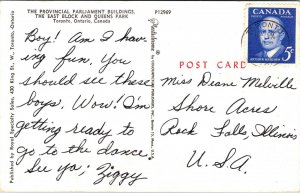 THE PROVINCIAL PARLIAMENT BUILDINGS,
THE EAST BLOCK AND QUEENS PARK
Toronto, Ontario, Canada
P12969
Boy! Am I hav-
ing fun. You
should see these
boys. Wow! I'm
getting ready to
go to the dance.
See ya; Ziggy
Published by Royal Specialty Sales, 430 King St. W., Toronto, Ontario
POST CARD
CANADA
POSTES POSTAGE
5¢
Miss Diane Melville
Shore Acres
Rock Falls, Illinois
U.S.A.